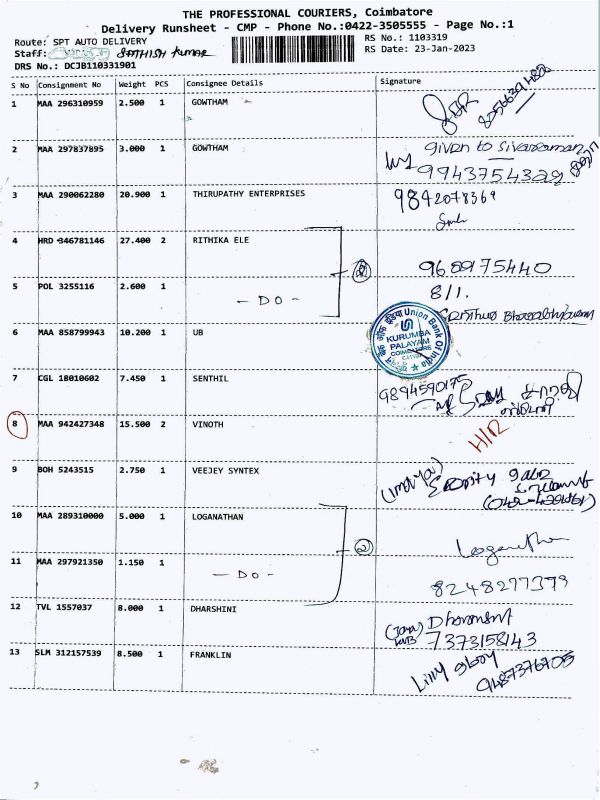 THE PROFESSIONAL COURIERS, Coimbatore
Delivery Runsheet - CMP - Phone No.:0422-3505555 - Page No.:1
Route: SPT AUTO DELIVERY
RS No.: 1103319
Staff: Sathish Kumar
RS Date: 23-Jan-2023
DRS No.: DCJB110331901
S No Consignment No Weight PCS Consignee Details Signature
1 MAA 296310959 2.500 1 GOWTHAM
2 MAA 297837895 3.000 1 GOWTHAM given to Sivaraman
3 MAA 290062280 20.900 1 THIRUPATHY ENTERPRISES 9842078369
4 HRD 346781146 27.400 2 RITHIKA ELE 9689175440
5 POL 3255116 2.600 1 - DO - 8/1.
6 MAA 858799943 10.200 1 UB Union Bank Of India KURUMBA PALAYAM COIMBATORE
7 CGL 18010602 7.450 1 SENTHIL 9894590175
8 MAA 942427348 15.500 2 VINOTH H/R
9 BOH 5243515 2.750 1 VEEJEY SYNTEX
10 MAA 289310000 5.000 1 LOGANATHAN Loganathan
11 MAA 297921350 1.150 1 - DO - 2 8248277379
12 TVL 1557037 8.000 1 DHARSHINI 7373158143
13 SLM 312157539 8.500 1 FRANKLIN Lilly 9487376705